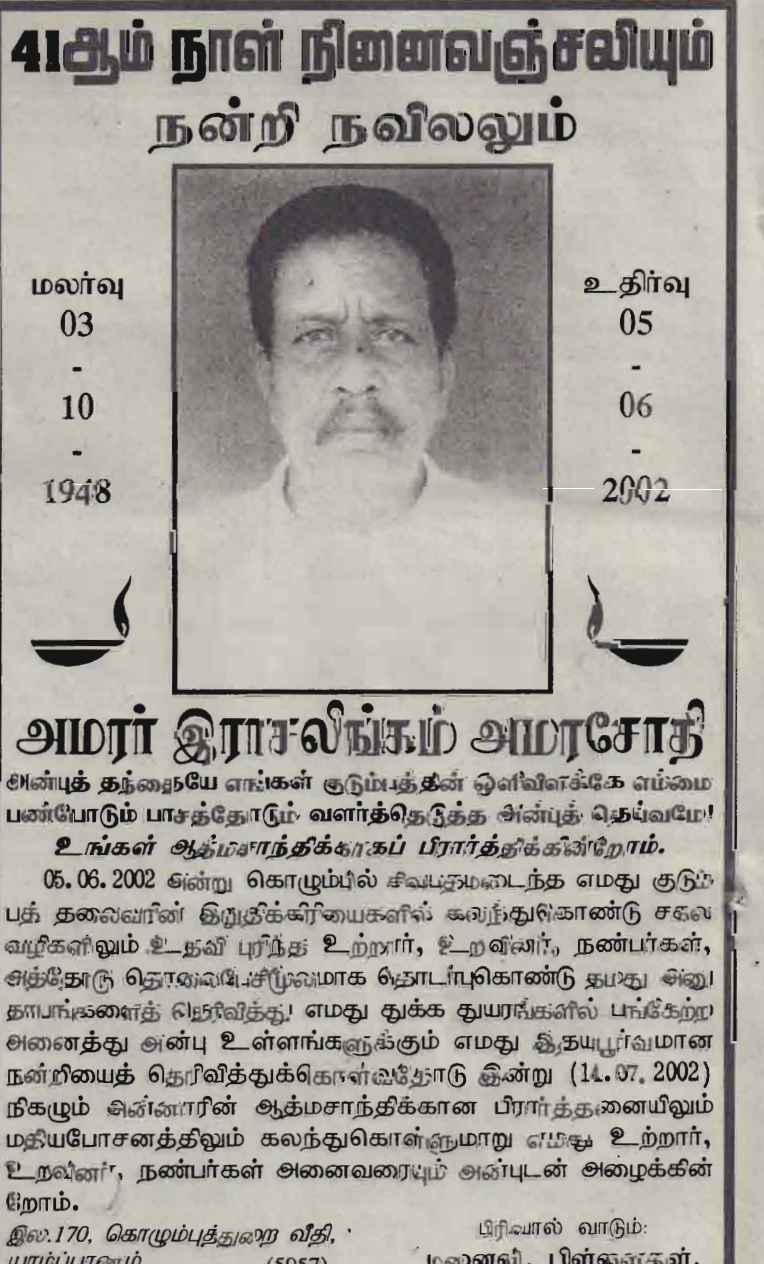 41ஆம் நாள் நினைவஞ்சலியும்
நன்றி நவிலலும்
மலர்வு
03
-
10
-
1948
உதிர்வு
05
-
06
-
2002
அமரர் இராசலிங்கம் அமரசோதி
அன்புத் தந்தையே எங்கள் குடும்பத்தின் ஒளிவிளக்கே எம்மை
பண்போடும் பாசத்தோடும் வளர்த்தெடுத்த அன்புத் தெய்வமே!
உங்கள் ஆத்மசாந்திக்காகப் பிரார்த்திக்கின்றோம்.
05.06.2002 அன்று கொழும்பில் சிவபதமடைந்த எமது குடும்
பத் தலைவரின் இறுதிக்கிரியைகளில் கலந்துகொண்டு சகல
வழிகளிலும் உதவி புரிந்த உற்றார், உறவினர், நண்பர்கள்,
அத்தோடு தொலைபேசிமூலமாக தொடர்புகொண்டு தமது அனு
தாபங்களைத் தெரிவித்து எமது துக்க துயரங்களில் பங்கேற்ற
அனைத்து அன்பு உள்ளங்களுக்கும் எமது இதயபூர்வமான
நன்றியைத் தெரிவித்துக்கொள்வதோடு இன்று (14.07.2002)
நிகழும் அன்னாரின் ஆத்மசாந்திக்கான பிரார்த்தனையிலும்
மதியபோசனத்திலும் கலந்துகொள்ளுமாறு எமது உற்றார்,
உறவினர், நண்பர்கள் அனைவரையும் அன்புடன் அழைக்கின்
றோம்.
இல.170, கொழும்புத்துறை வீதி,
யாழ்ப்பாணம். (5957)
பிரிவால் வாடும்:
மனைவி, பிள்ளைகள்.